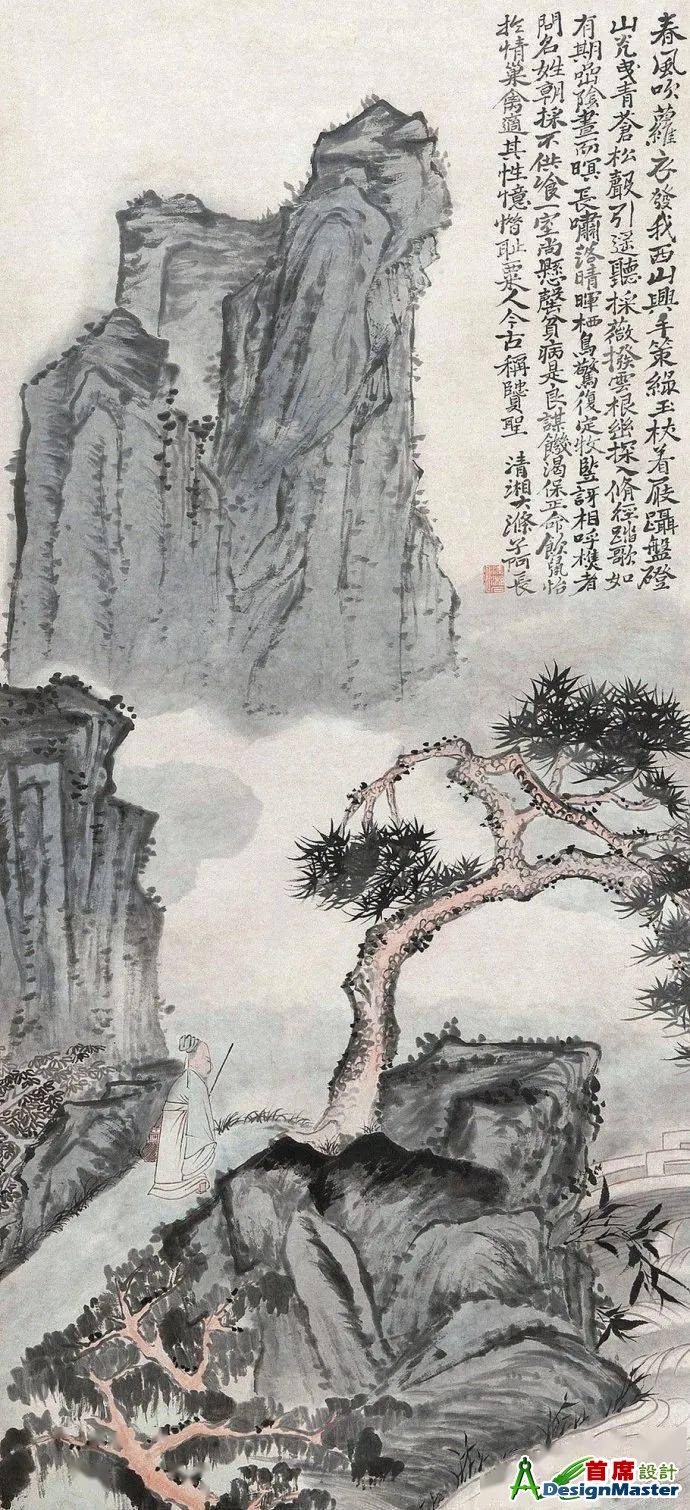 春風吹蘿衣發我西山興手策綠玉杖着屐躡盤磴
山光曳青蒼松聲引遥聽採薇撥雲根幽探入脩徑踏歌如
有期巒陰晝而暝長嘯落晴暉栖鳥驚復定牧豎訝相呼樵者
問名姓朝採不供飡一室尚懸磬貧病是良謀饑渴保正命飲氣怡
於情巢禽適其性憶惜耻粟人今古稱賢聖
清湘大滌子阿長
首席設計
ADesignMaster